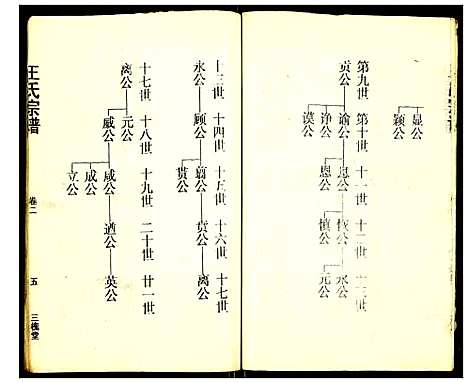 显公
颖公
第九世 第十世 十一世 十二世 十三世
贡公 谕公 息公 恢公 永公
诤公 恩公 慎公 元公
谟公
十三世 十四世 十五世 十六世 十七世
永公 顾公 蔚公 贲公 离公
贯公
十七世 十八世 十九世 二十世 廿一世
离公 元公
威公 咸公 遒公 英公
成公
立公
王氏宗谱 卷二 五 三槐堂